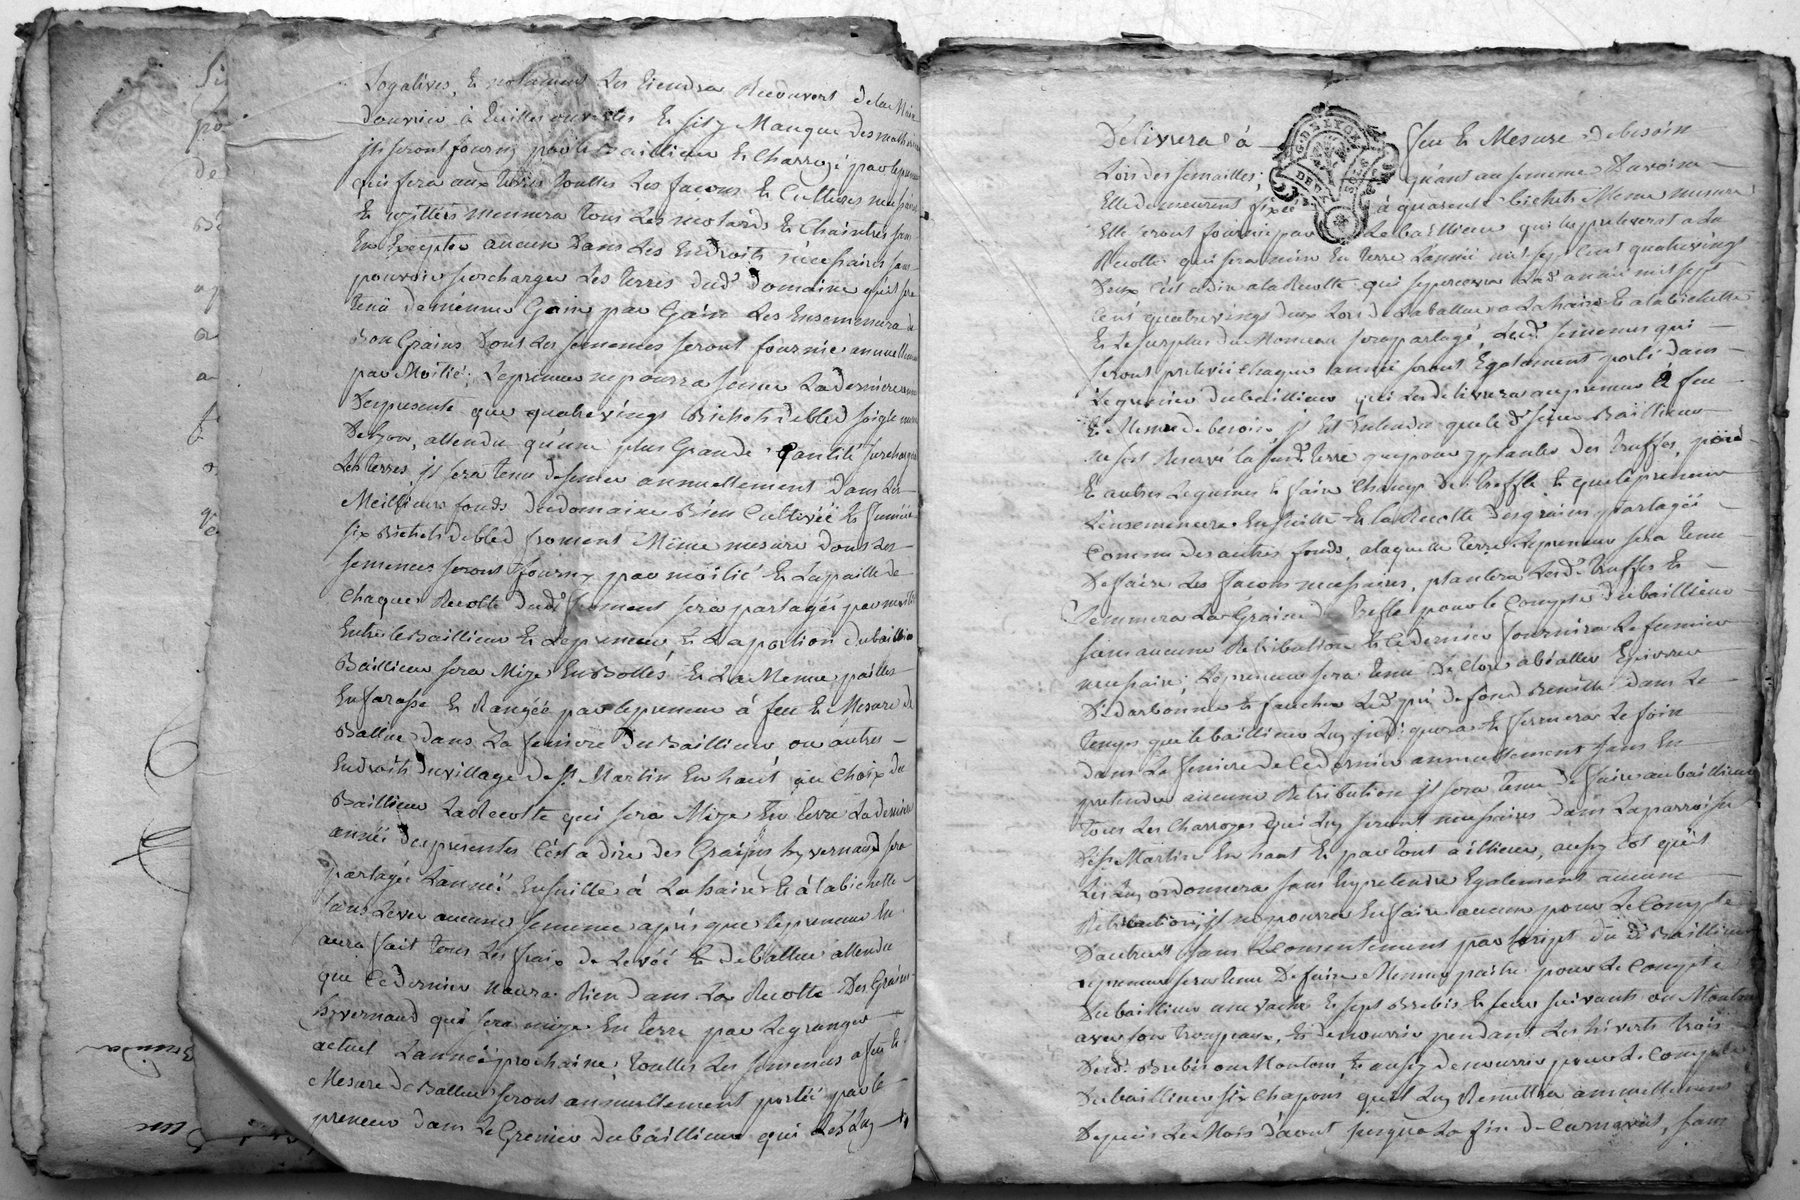 Logatives, Et notament Les tiendra Recouvert de la Main
d'ouvrier à tuilles
ils seront fourny par le Bailleur Et Charroyé par le preneur
qui fera aux terres touttes Les façons Et Cultures necessaires
tous Les Et Chaintres sans
En Excepter aucun dans Les Endroits necessaires sans
pouvoir surcharger Les terres dud.t domaine qu'il sera
tenû de même Gain par Gain Les Ensemencera de
Bon Grains dont Les semences seront fournie annuellement
par Moitié; Le preneur ne pourra semer La derniere année
Des presente que quatre vingt Bichets de bled seigle mesure
De Lyon, attendu qu'une plus Grande qantité surchargerait
Les terres, il sera tenu de semer annuellement dans Les
Meillieurs fonds du domaine Bien Cultivéé Et fumée
six Bichets de bled froment Même mesure dont Les
semences seront fourny par moitié Et La paille de
Chaque Recolte dud.t froment sera partagéé par moitié
Entre Le Baillieur Et Le preneur, Et La portion du baillieur
Baillieur sera Mize En Bottes Et La Menue pailles
En Et Rangéé par Le preneur à feu Et Mesure de
Battue dans La feniere du Baillieur ou autres
Endroits du village de S.t Martin En haut au Choix du
Baillieur La Recolte qui sera Mize En terre La derniere
année des presentes C'est a dire des Grains hyvernaud sera
partagée L'annéé Ensuitte à La haire Et à la bichette
sans Lever aucune semence après que Le preneur En
aura fait tous Les fraix de Levéé Et de battue attendu
que Ce dernier n'aura Rien dans La Recolte Des Grains
hyvernaud qui sera mize En terre par Le granger
actuel L'annéé prochaine; touttes Les semences a feu Et
Mesure de Battue seront annuellement portéé par Le
preneur dans Le Grenier du bailleur qui Les Luy
Délivrera à feu Et Mesure de besoin
Lors des semailles; quant au semence D'avoine
Elle demeurent fixéé à quarente bichets Meme mesure
Elle seront fournie par Le baillieur qui Les prelevera a La
Recolte qui sera mise En terre L'année mil sept Cent quatre vingt
Deux C'est a dire a la Recolte qui se percevra Lad. année mil sept
Cent quatre vingt deux Lors de La battue a La haire Et a la bichette
Et Le surplus du Monceau sera partagé, Lesd. semences qui
seront preleveé chaque année seront Egalement porté dans
Le grenier du baillieur qui Les délivrera au preneur à feu
Et Mesure de besoin, il Est Entendu que Le d. sieur Baillieur
se sert Reservé La susd. terre que pour y planter des truffes, pois
Et autres Legumes Et faire Champ De treffle Et que Le preneur
L'ensemencera Ensuitte Et la Recolte des grains partagéé
Comme des autres fonds, a laquelle terre Le preneur sera tenu
De faire Les façons necessaires, plantera Lesd. truffes Et
Semmera La Graine de treffle pour le Compte du baillieur
sans aucune Retribution Et Ce dernier fournira Le fumier
necessaire; Le preneur sera tenu De Clore abéaller Epierrer
Dedarbonner Et faucher Led. pré de fond Benoitte dans Le
temps que le baillieur Luy indiquera Et serrera Le foin
dans La feniere de Ce dernier annuellement sans En
pretendre aucune Retribution il sera tenu de faire au baillieur
tous Les Charroyes qui Luy seront necessaires dans La parroisse
De St Martin En haut Et par tout aillieur, aussy tot qu'il
Les Luy ordonnera sans En pretendre Egalement aucune
Retribution, il ne pourra En faire aucun pour Le Compte
D'autruit sans Le Consentement par Ecript du d. Baillieur
Le preneur sera tenu De faire Mener paitre pour Le Compte
Du baillieur une vache Et sept Brebis Et Leur suivants ou Moutons
avec son troupeaux, Et de nourrir pendant Les hiverts trois
Desd. Brebis ou Moutons, Et aussy de nourrir pour Le Compte
Du baillieur six Chapons qu'il Luy Remettra annuellement
Depuis Le Mois d'aout jusqu'a La fin de Carnavat, sans
G.D. DE LYON
DEUX SOLS